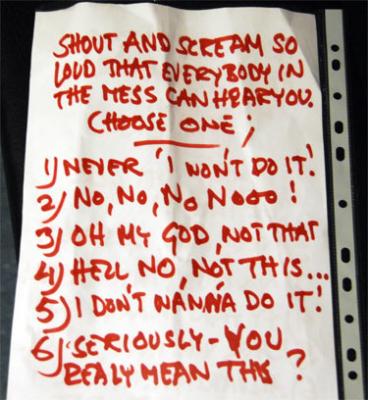 SHOUT AND SCREAM SO
LOUD THAT EVERYBODY IN
THE MESS CAN HEAR YOU.
CHOOSE ONE;
1) NEVER 'I WON'T DO IT!
2) NO, NO, NO NOOO!
3) OH MY GOD, NOT THAT
4) HELL NO, NOT THIS...
5) I DON'T WANNA DO IT!
6) SERIOUSLY - YOU
REALY MEAN THIS ?